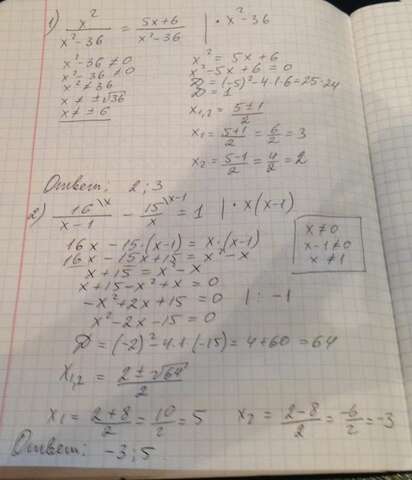 1) x²/(x²-36) = (5x+6)/(x²-36) | · x²-36
x²-36 ≠ 0
x²-36 ≠ 0
x² ≠ 36
x ≠ ±√36
x ≠ ± 6
x² = 5x+6
x²-5x+6 = 0
D = (-5)²-4·1·6 = 25-24
D = 1
x₁,₂ = (5±1)/2
x₁ = (5+1)/2 = 6/2 = 3
x₂ = (5-1)/2 = 4/2 = 2
Ответ: 2; 3
2) 16\x/(x-1) - 15\x-1/x = 1 | · x(x-1)
x ≠ 0
x-1 ≠ 0
x ≠ 1
16x - 15·(x-1) = x·(x-1)
16x - 15x+15 = x²-x
x+15 = x²-x
x+15-x²+x = 0
-x²+2x+15 = 0 | : -1
x²-2x-15 = 0
D = (-2)²-4·1·(-15) = 4+60 = 64
x₁,₂ = (2±√64)/2
x₁ = (2+8)/2 = 10/2 = 5
x₂ = (2-8)/2 = -6/2 = -3
Ответ: -3; 5